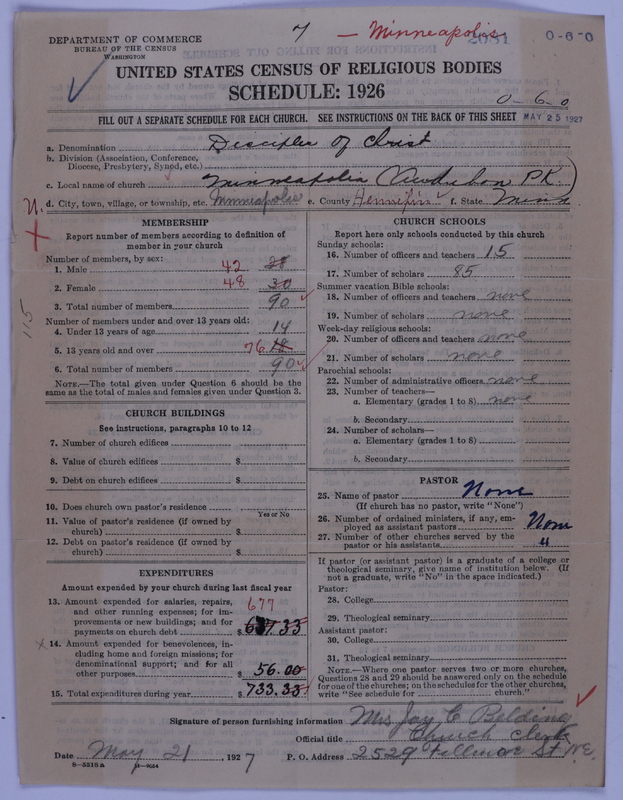 7 — Minneapolis
DEPARTMENT OF COMMERCE
BUREAU OF THE CENSUS
WASHINGTON
2051
0-6-0
UNITED STATES CENSUS OF RELIGIOUS BODIES
SCHEDULE: 1926
0-6-0
FILL OUT A SEPARATE SCHEDULE FOR EACH CHURCH. SEE INSTRUCTIONS ON THE BACK OF THIS SHEET MAY 25 1927
a. Denomination Disciples of Christ
b. Division (Association, Conference,
Diocese, Presbytery, Synod, etc.)
c. Local name of church Minneapolis (Audubon PK.)
d. City, town, village, or township, etc. Minneapolis e. County Hennepin f. State Minn
MEMBERSHIP
Report number of members according to definition of
member in your church
Number of members, by sex:
1. Male 42
2. Female 48 30
3. Total number of members 90
Number of members under and over 13 years old:
4. Under 13 years of age 14
5. 13 years old and over 76
6. Total number of members 90
NOTE.—The total given under Question 6 should be the
same as the total of males and females given under Question 3.
115
CHURCH BUILDINGS
See instructions, paragraphs 10 to 12
7. Number of church edifices
8. Value of church edifices $
9. Debt on church edifices $
10. Does church own pastor's residence
Yes or No
11. Value of pastor's residence (if owned by
church) $
12. Debt on pastor's residence (if owned by
church) $
EXPENDITURES
Amount expended by your church during last fiscal year
13. Amount expended for salaries, repairs,
and other running expenses; for im-
provements or new buildings; and for
payments on church debt $
677
14. Amount expended for benevolences, in-
cluding home and foreign missions; for
denominational support; and for all
other purposes $ 56.00
15. Total expenditures during year $ 733.33
CHURCH SCHOOLS
Report here only schools conducted by this church
Sunday schools:
16. Number of officers and teachers 15
17. Number of scholars 85
Summer vacation Bible schools:
18. Number of officers and teachers none
19. Number of scholars none
Week-day religious schools:
20. Number of officers and teachers none
21. Number of scholars none
Parochial schools:
22. Number of administrative officers none
23. Number of teachers—
a. Elementary (grades 1 to 8) none
b. Secondary
24. Number of scholars—
a. Elementary (grades 1 to 8)
b. Secondary
PASTOR
25. Name of pastor None
(If church has no pastor, write "None")
26. Number of ordained ministers, if any, em-
ployed as assistant pastors None
27. Number of other churches served by the
pastor or his assistants "
If pastor (or assistant pastor) is a graduate of a college or
theological seminary, give name of institution below. (If
not a graduate, write "No" in the space indicated.)
Pastor:
28. College
29. Theological seminary
Assistant pastor:
30. College
31. Theological seminary
NOTE.—Where one pastor serves two or more churches,
Questions 28 and 29 should be answered only on the schedule
for one of the churches; on the schedules for the other churches,
write "See schedule for church."
Signature of person furnishing information Mrs Jay C Belding
Official title Church Clerk
Date May 21, 1927 P. O. Address 2529 Fillmore St NE.
8—5518a